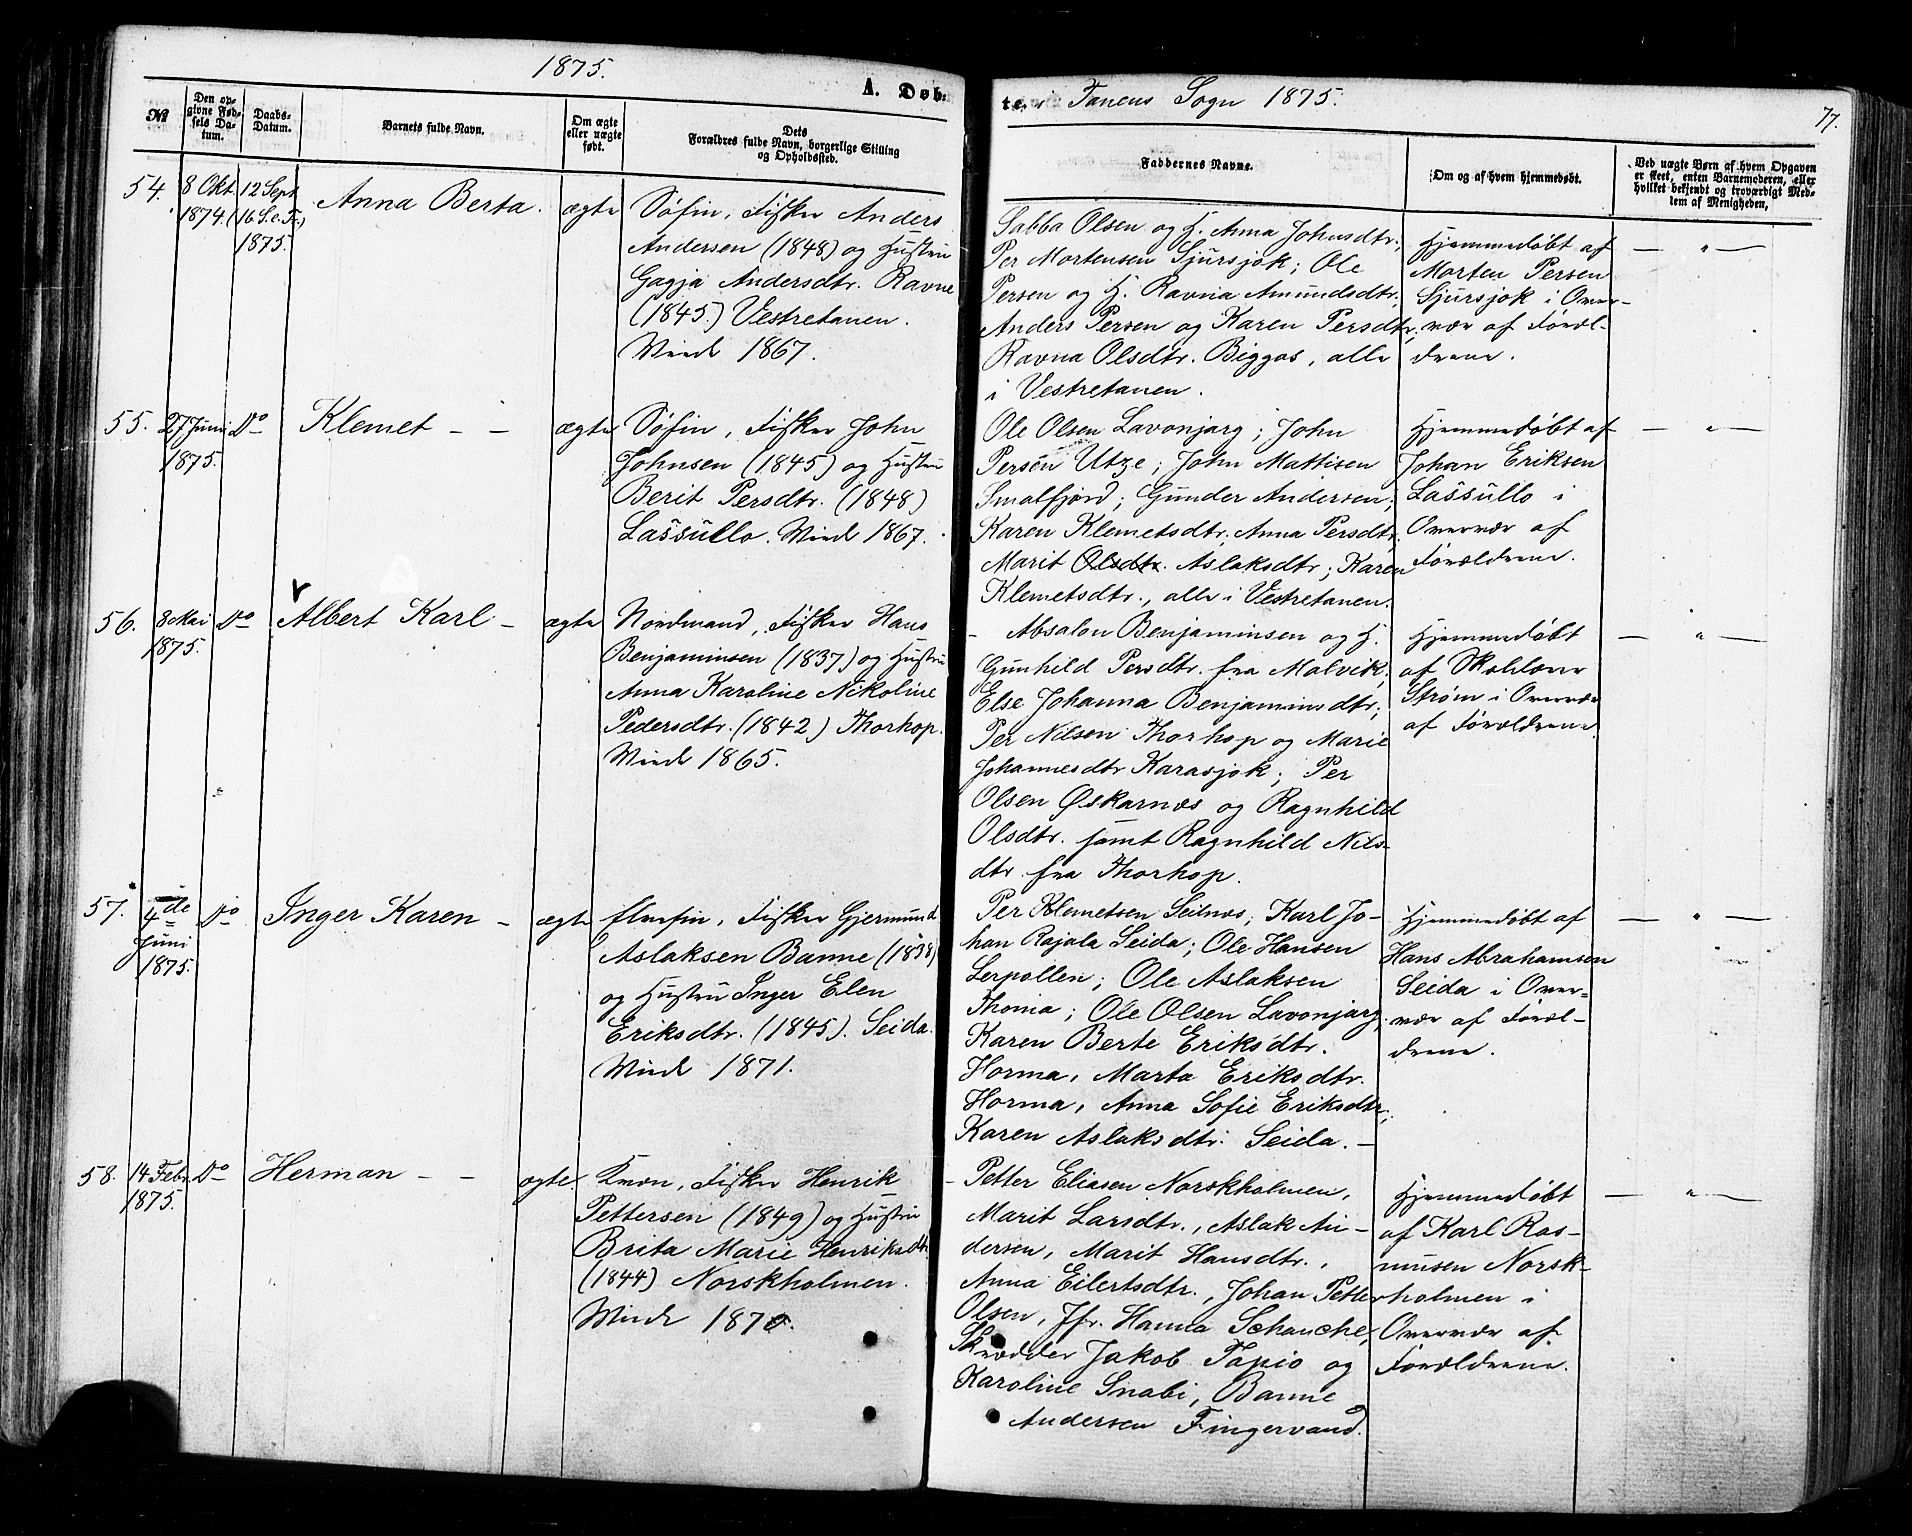 1875.
A. Døb-
te i Tanens Sogn 1875.
77.
No
Den op-
givne Fød-
sels Da-
tum.
Daabs-
Datum.
Barnets fulde Navn.
Om ægte
eller uægte
født.
Dets
Forældres fulde Navn, borgerlige Stilling
og Opholdssted.
Faddernes Navne.
Om og af hvem hjemmedøbt.
Ved uægte Børn af hvem Opgaven
er skeet, enten Barnemoderen, eller
hvilket bekjendt og troværdigt Med-
lem af Menigheden.
54.
8 Okt.
1874.
12 Sept.
(16 S.e.Tr.)
1875.
Anna Berta.
ægte
Søfin, Fisker Anders
Andersen (1848) og Hustru
Gagja Andersdtr. Ravne
(1845.) Vestretanen.
Viede 1867.
Sabba Olsen og H. Anna Johnsdtr.;
Per Mortensen Sjursjok; Ole
Persen og H. Ravna Amundsdtr.
Anders Persen og Karen Persdtr;
Ravna Olsdtr. Biggas, alle
i Vestretanen.
Hjemmedøbt af
Morten Persen
Sjursjok i Over-
vær af Foræl-
drene.
— " —
55.
27 Juni
1875.
Do
Klemet — —
ægte
Søfin, Fisker John
Johnsen (1845) og Hustru
Berit Persdtr. (1848)
Lassullo. Viede 1867.
Ole Olsen Lavonjarg; John
Persen Utze; John Mattisen
Smalfjord; Gunder Andersen;
Karen Klemetsdtr; Anna Persdtr;
Marit Olsdtr. Aslaksdtr; Karen
Klemetsdtr., alle i Vestretanen.
Hjemmedøbt af
Johan Eriksen
Lassullo i
Overvær af
Forældrene.
— " —
56.
8 Mai
1875.
Do
Albert Karl —
ægte
Nordmand, Fisker Hans
Benjaminsen (1837) og Hustru
Anna Karoline Nikoline
Pedersdtr. (1842) Thorhop.
Viede 1865.
Absalon Benjaminsen og H.
Gunhild Persdtr. fra Malvik;
Else Johanna Benjaminsdtr;
Per Nilsen Thorhop og Marie
Johannesdtr Karasjok; Per
Olsen Øskarnæs og Ragnhild
Olsdtr. samt Ragnhild Nils-
dtr. fra Thorhop.
Hjemmedøbt
af Skolelærer
Strøm i Overvær
af Forældrene.
— " —
57.
4de
Juni
1875.
Do
Inger Karen —
ægte
Elvefin, Fisker Gjermund
Aslaksen Banne (1838)
og Hustru Inger Elen
Eriksdtr. (1845). Seida.
Viede 1871.
Per Klemetsen Seilnæs; Karl Jo-
han Rajala Seida; Ole Hansen
Lerpollen; Ole Aslaksen
Thoma; Ole Olsen Lavonjarg;
Karen Berte Eriksdtr.
Horma, Marta Eriksdtr.
Horma, Anna Sofie Eriksdtr;
Karen Aslaksdtr. Seida. —
Hjemmedøbt af
Hans Abrahamsen
Seida i Over-
vær af Foræl-
drene.
— " —
58.
14 Febr.
1875.
Do
Herman — —
ægte.
Kvæn, Fisker Henrik
Pettersen (1849) og Hustru
Brita Marie Henriksdtr
(1844) Norskholmen.
Viede 1870.
Petter Eliasen Norskholmen,
Marit Larsdtr., Aslak An-
dersen, Marit Hansdtr.,
Anna Eilertsdtr., Johan Petter
Olsen, Jfr. Hanna Schanche,
Skrædder Jakob Tapio og
Karoline Snabi, Banne
Andersen Fingervand.
Hjemmedøbt
af Karl Ras-
mussen Norsk-
holmen i
Overvær af
Forældrene.
— " —